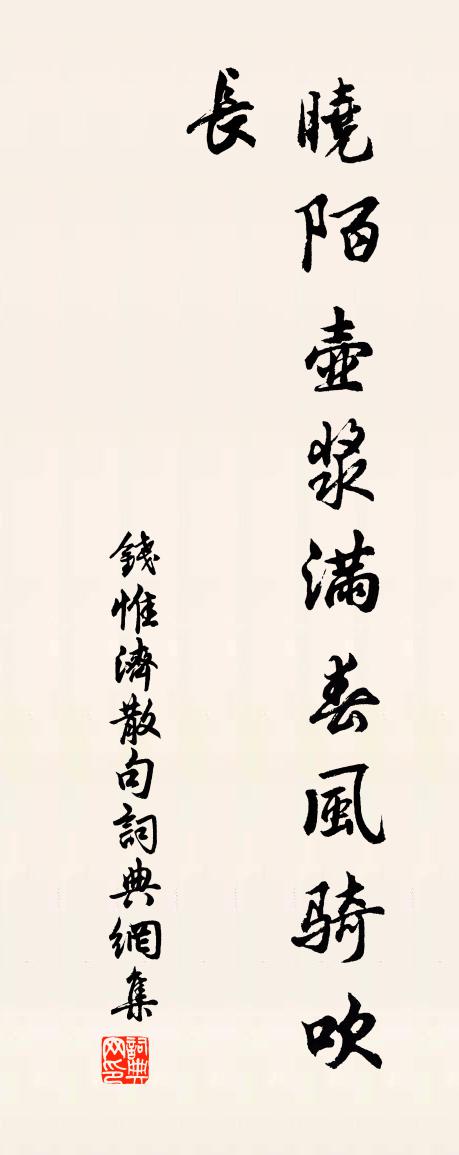 曉陌壺漿滿春風骑吹
長
錢惟濟散句詞典網集
詞典网印